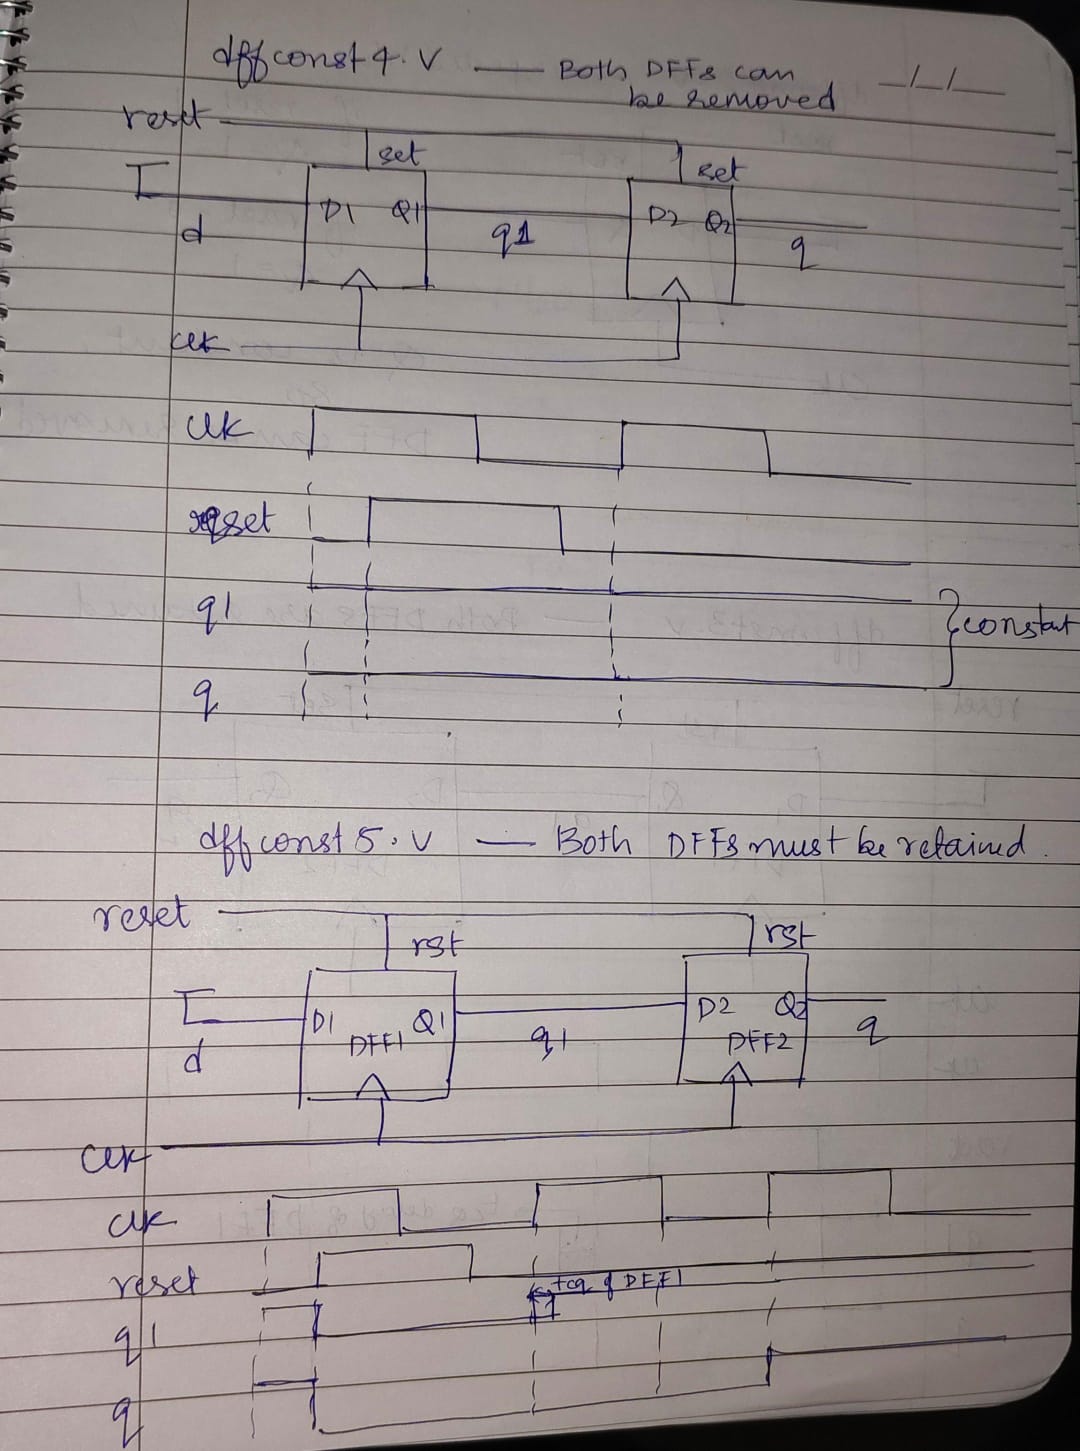 dffconst4.v — Both DFFs can
be removed
_/_/__
reset
set
set
D1 Q1
D2 Q2
d
q1
q
clk
clk
reset
q1
} constant
q
dffconst5.v — Both DFFs must be retained.
reset
rst
rst
D1 Q1
D2 Q2
DFF1
DFF2
d
q1
q
clk
clk
reset
tcq of DFF1
q1
q